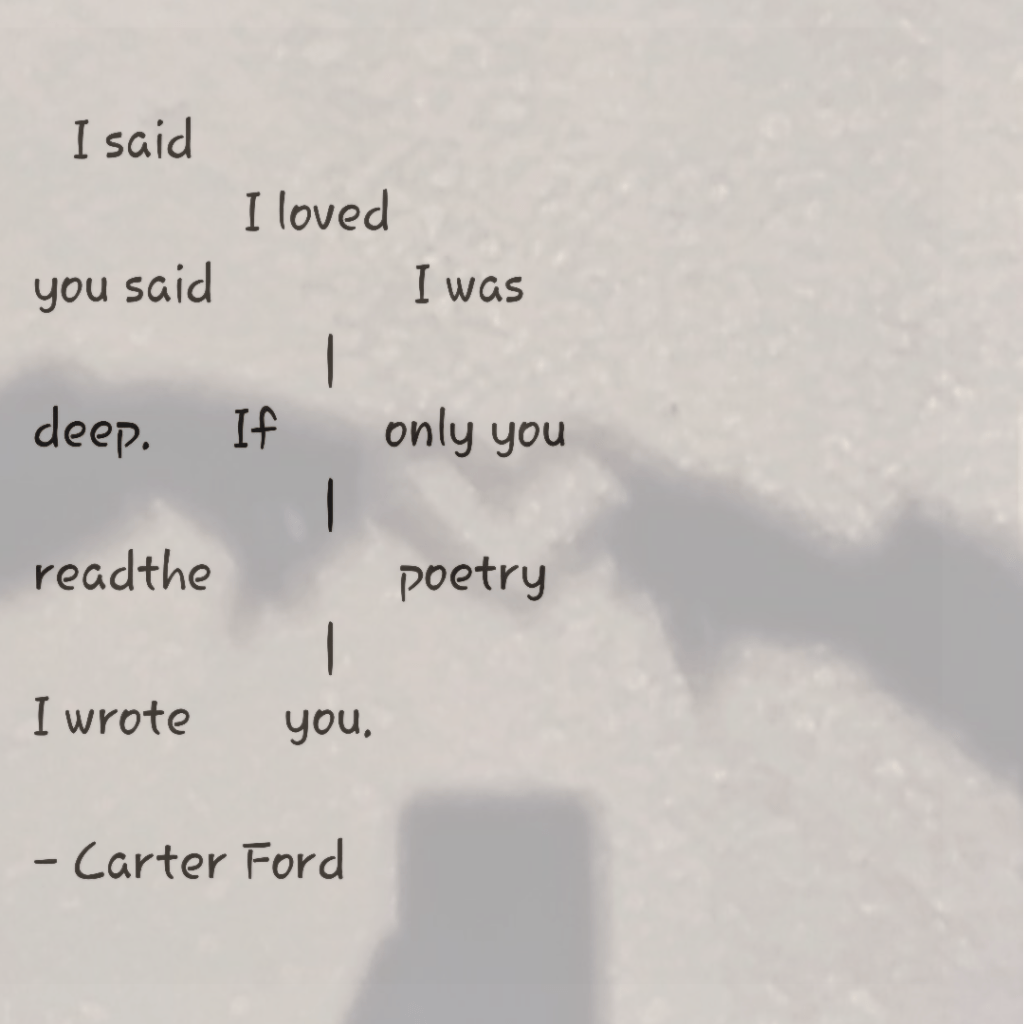 I said
I loved
you said I was
|
deep. If only you
|
readthe poetry
|
I wrote you.
- Carter Ford